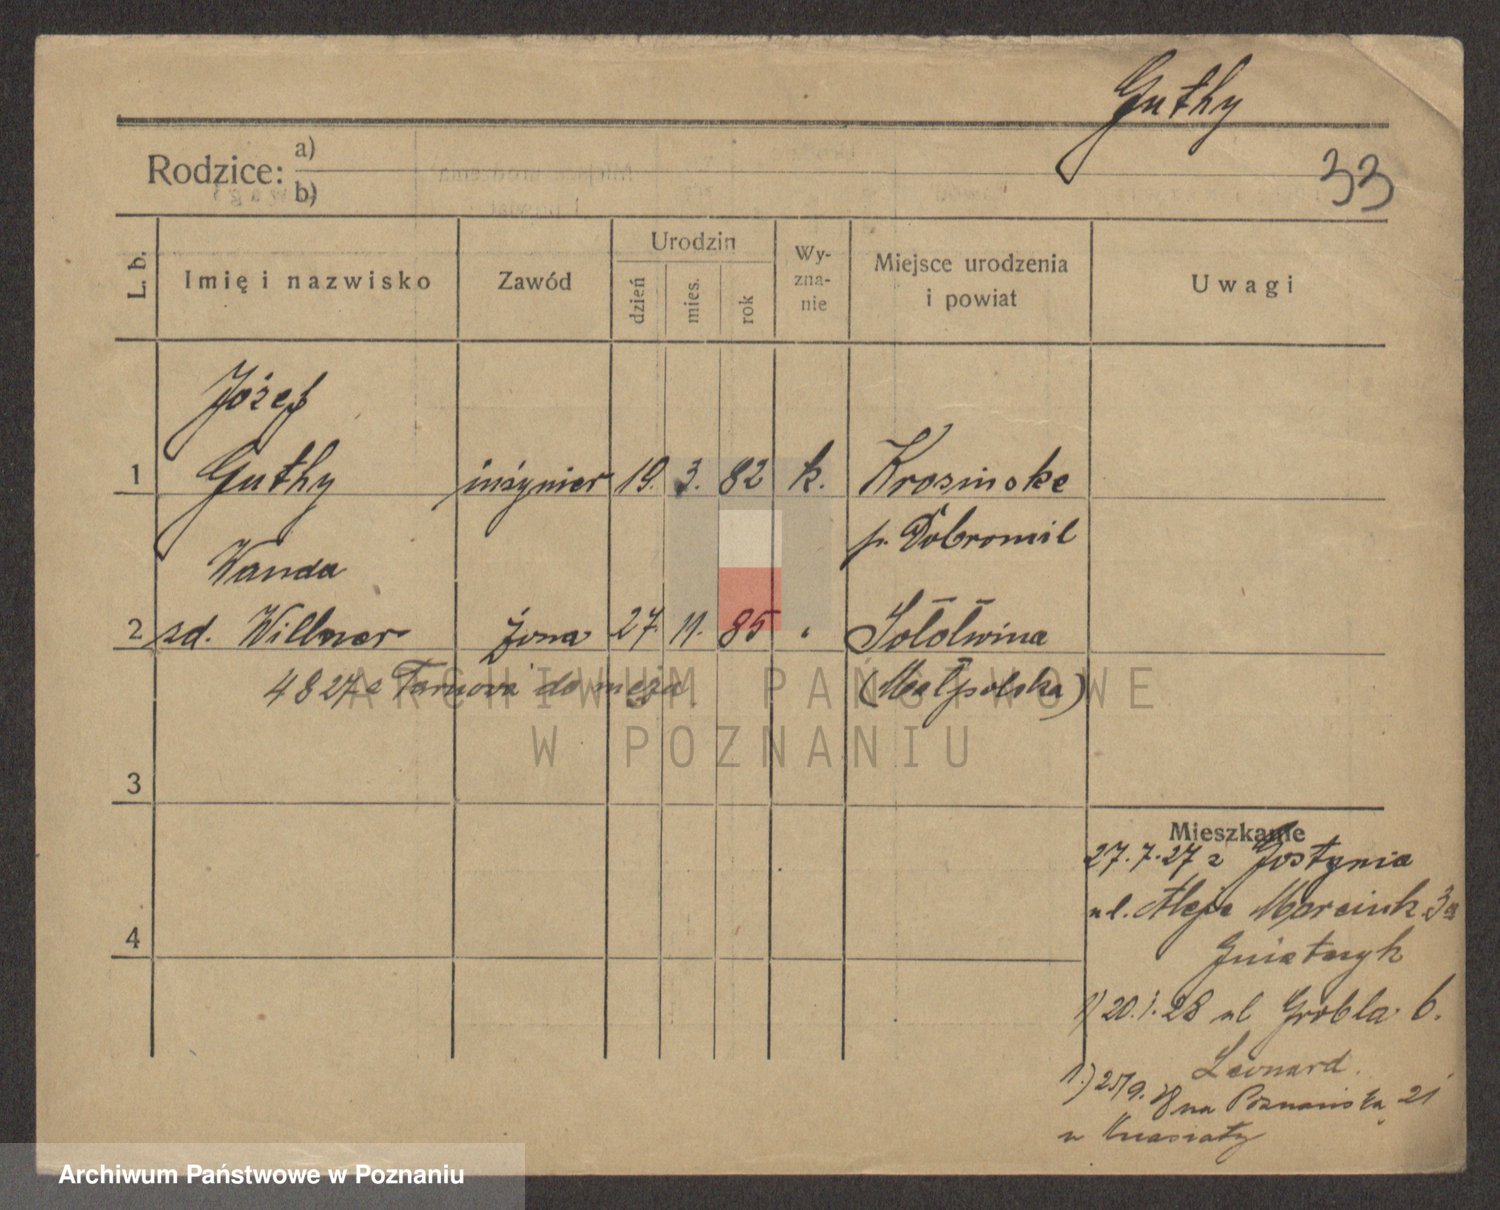 Guthy
33
Rodzice: a)
b)
L. b.
Imię i nazwisko
Zawód
Urodzin
dzień
mies.
rok
Wy-
zna-
nie
Miejsce urodzenia
i powiat
Uwagi
Józef
1 Guthy inżynier 19. 3. 82 k. Krosinoke
p. Dobromil
Wanda
2 zd. Willner żona 27. 11. 85 " Sołotwina
4 8 27 z Tarnowa do męża (Małpolska)
3
Mieszkanie
27.7.27 z Gostynia
ul. Aleje Marcink. 3a
4
1) 20.1.28 ul Grobla 6.
Leonard
1.) 25/9. 28 na Poznańską 21
ARCHIWUM PAŃSTWOWE
W POZNANIU
Archiwum Państwowe w Poznaniu